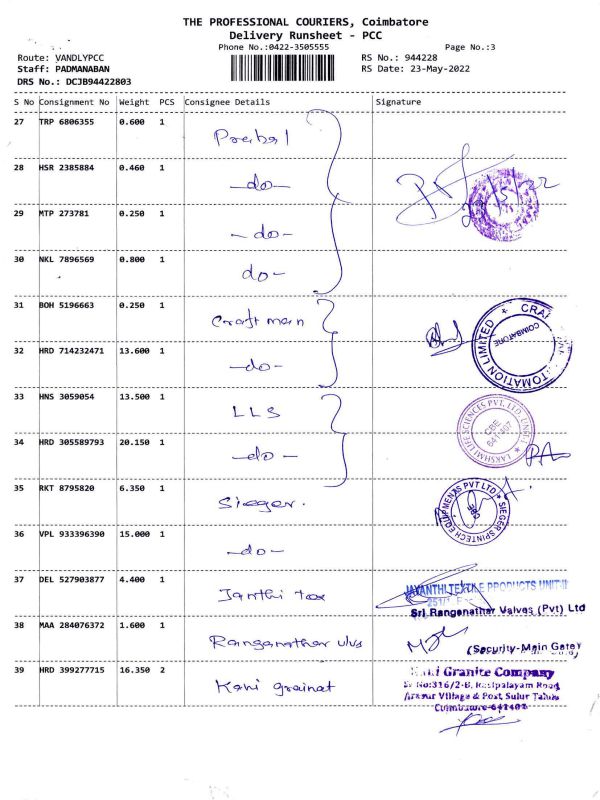 THE PROFESSIONAL COURIERS, Coimbatore
Delivery Runsheet - PCC
Phone No.:0422-3505555
Page No.:3
Route: VANDLYPCC
RS No.: 944228
Staff: PADMANABAN
RS Date: 23-May-2022
DRS No.: DCJB94422803
S No Consignment No Weight PCS Consignee Details Signature
27 TRP 6806355 0.600 1
28 HSR 2385884 0.460 1 -do-
29 MTP 273781 0.250 1 -do-
30 NKL 7896569 0.800 1 do-
31 BOH 5196663 0.250 1 Craftman
32 HRD 714232471 13.600 1 -do-
COIMBATORE
33 HNS 3059054 13.500 1 LLS
LAKSHMI LIFE SCIENCES PVT. LTD. UNIT-I
CBE
641 407
34 HRD 305589793 20.150 1 -do-
35 RKT 8795820 6.350 1 Sieger.
SIEGER SPINTECH EQUIPMENTS PVT LTD
CBE
36 VPL 933396390 15.000 1 -do-
37 DEL 527903877 4.400 1 Janthi tex
JAYANTHI TEXTILE PRODUCTS UNIT-II
Sri Ranganathar Valves (Pvt) Ltd
38 MAA 284076372 1.600 1 Ranganathar vlvs
(Security-Main Gate)
39 HRD 399277715 16.350 2 Kani grainat
Kani Granite Company
Sf No:316/2-B, Rasipalayam Road,
Arasur Village & Post, Sulur Taluk
Coimbatore-641407